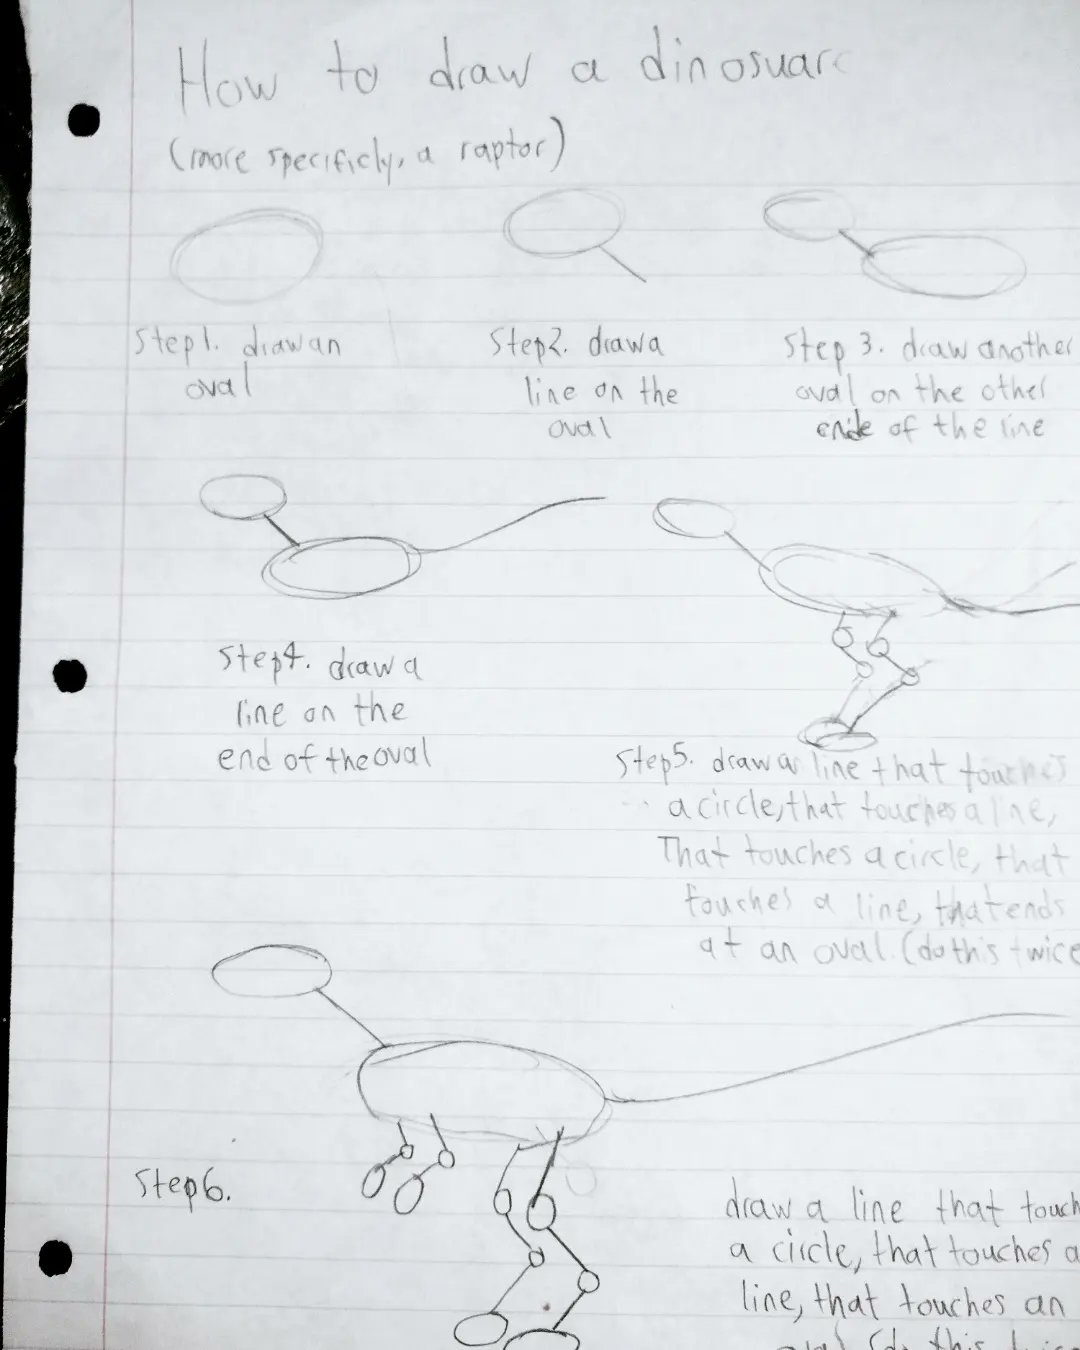 How to draw a dinosuar
(more specificly, a raptor)
Step1. draw an
oval
Step2. draw a
line on the
oval
Step 3. draw another
oval on the other
ende of the line
Step4. draw a
line on the
end of the oval
Step5. draw a line that touches
a circle, that touches a line,
That touches a circle, that
touches a line, that ends
at an oval. (do this twice
Step6.
draw a line that touch
a circle, that touches a
line, that touches an
oval (do this